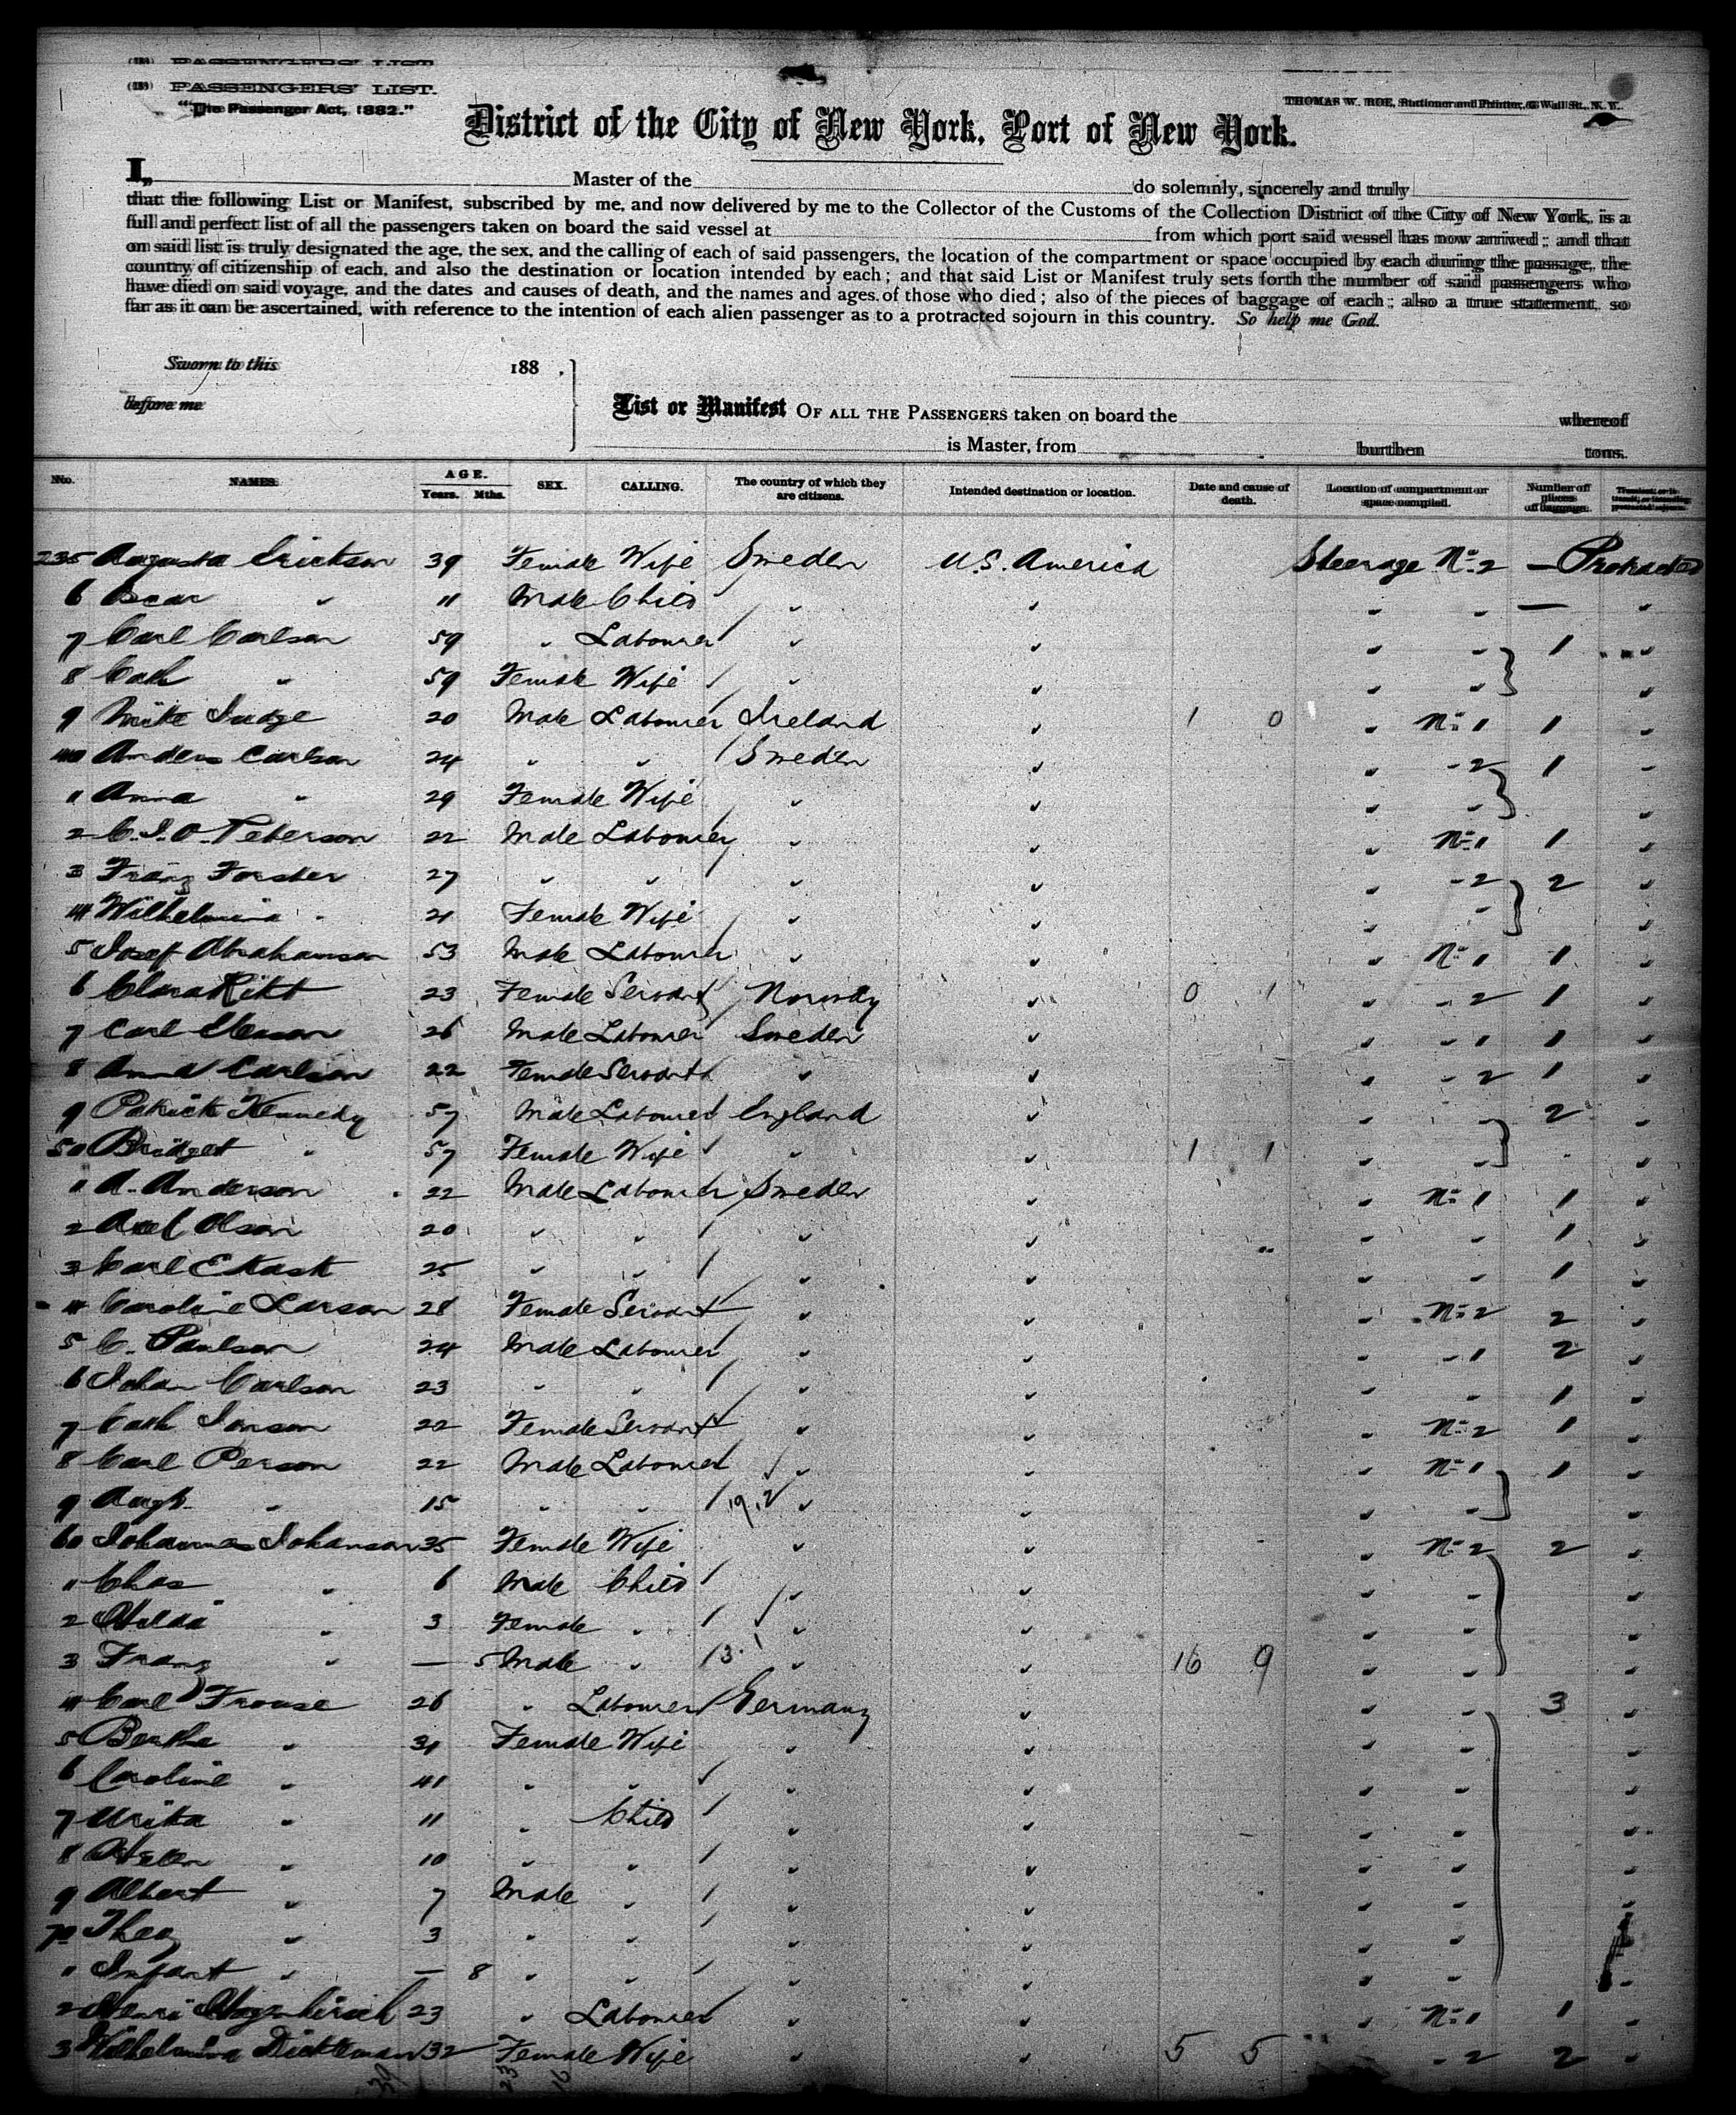 (153) PASSENGERS' LIST
(153) PASSENGERS' LIST.
"The Passenger Act, 1882."
THOMAS W. ROE, Stationer and Printer, Wall St., N. Y.
District of the City of New York, Port of New York.
I, Master of the do solemnly, sincerely and truly
that the following List or Manifest, subscribed by me, and now delivered by me to the Collector of the Customs of the Collection District of the City of New York, is a
full and perfect list of all the passengers taken on board the said vessel at from which port said vessel has now arrived; and that
on said list is truly designated the age, the sex, and the calling of each of said passengers, the location of the compartment or space occupied by each during the passage, the
country of citizenship of each, and also the destination or location intended by each; and that said List or Manifest truly sets forth the number of said passengers who
have died on said voyage, and the dates and causes of death, and the names and ages of those who died; also of the pieces of baggage of each; also a true statement, so
far as it can be ascertained, with reference to the intention of each alien passenger as to a protracted sojourn in this country. So help me God.
Sworn to this 188 .
before me
List or Manifest OF ALL THE PASSENGERS taken on board the whereof
is Master, from burthen tons.
No. NAMES. AGE. Years. Mths. SEX. CALLING. The country of which they are citizens. Intended destination or location. Date and cause of death. Location of compartment or space occupied. Number of pieces of baggage.
235 Augusta Erickson 39 Female Wife Sweden U.S. America Steerage No. 2 — Protracted
6 Oscar " 11 Male Child " " " " — "
7 Carl Carlson 59 " Labourer " " " " 1 "
8 Cath " 59 Female Wife " " " " "
9 Mike Judge 20 Male Labourer Ireland " 1 0 " No. 1 1 "
40 Anders Carlson 24 " " Sweden " " - 2 1 "
11 Anna " 29 Female Wife " " " " "
2 C. J. O. Peterson 22 Male Labourer " " " No. 1 1 "
3 Franz Forster 27 " " " " " - 2 2 "
4 Wilhelmina " 21 Female Wife " " " " "
5 Josef Abrahamson 53 Male Labourer " " " No. 1 1 "
6 Clara 23 Female Servant Norway " 0 1 " - 2 1 "
7 Carl 26 Male Labourer Sweden " " - 1 1 "
8 Anna Carlson 22 Female Servant " " " - 2 1 "
9 Patrick Kennedy 57 Male Labourer England " " " 2 "
50 Bridget " 57 Female Wife " " 1 1 " " "
11 A. Anderson 22 Male Labourer Sweden " " No. 1 1 "
2 Axel Olson 20 " " " " " " 1 "
3 Carl 25 " " " " " " 1 "
4 Caroline Larson 28 Female Servant " " " No. 2 2 "
5 C. Paulson 24 Male Labourer " " " - 1 2 "
6 Johan Carlson 23 " " " " " " 1 "
7 Cath 22 Female Servant " " " No. 2 1 "
8 Carl Person 22 Male Labourer " " " No. 1 1 "
9 Augt. " 15 " " 19.2 " " " " "
60 Johannes Johanson 35 Female Wife " " No. 2 2 "
11 Chas " 6 Male Child " " " " "
2 Hulda " 3 Female " " " " " "
3 Franz " — 5 Male " 3.1 " " 16 9 " " "
4 Carl 26 " Labourer Germany " " " 3 "
5 Bertha " 31 Female Wife " " " " "
6 Caroline " 41 " " " " " " "
7 " 11 " Child " " " " "
8 Helen " 10 " " " " " " "
9 Albert " 7 Male " " " " " "
70 " 3 " " " " " " "
11 Infant " — 8 " " " " " " "
2 Henri 23 " Labourer " " " No. 1 1 "
3 Wilhelmina 32 Female Wife " " 5 5 " - 2 2 "
39 23 16